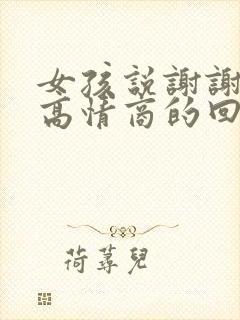 女孩説謝謝
高情商的回
荷蕁兒